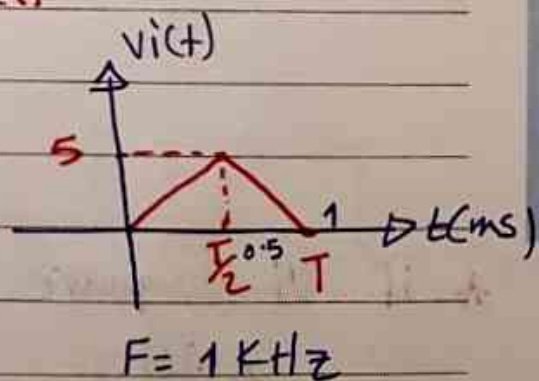 Vi(t)
5
T/2 0.5 T 1 t(ms)
F= 1 KHz